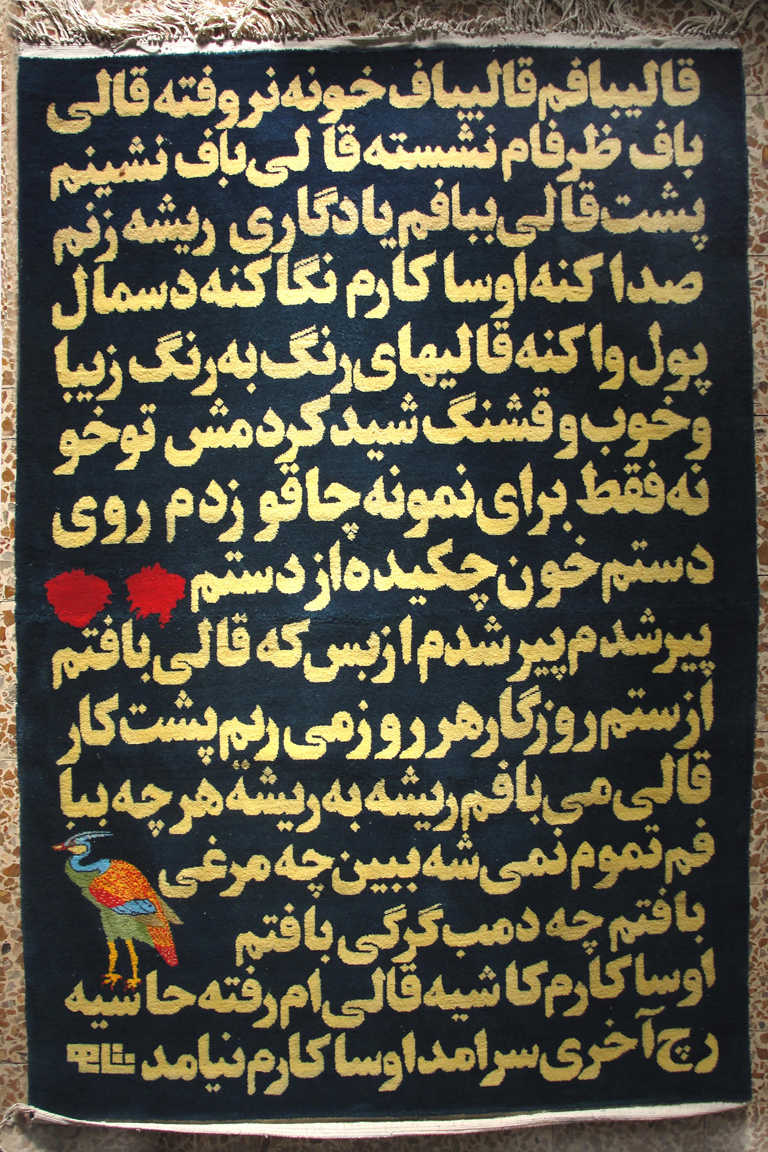 قالیبافم قالیباف خونه نروفته قالی
باف ظرفام نشسته قالی باف نشینم
پشت قالی ببافم یادگاری ریشه زنم
صدا کنه اوسا کارم نگا کنه دسمال
پول وا کنه قالیهای رنگ به رنگ زیبا
و خوب و قشنگ شید کردمش تو خو
نه فقط برای نمونه چاقو زدم روی
دستم خون چکیده از دستم
پیر شدم پیر شدم از بس که قالی بافتم
از ستم روزگار هر روز می ریم پشت کار
قالی می بافم ریشه به ریشة هر چه ببا
فم تموم نمی شه ببین چه مرغی
بافتم چه دمب گرگی بافتم
اوسا کارم کاشیه قالی ام رفته حاشیه
رج آخری سرامد اوسا کارم نیامد